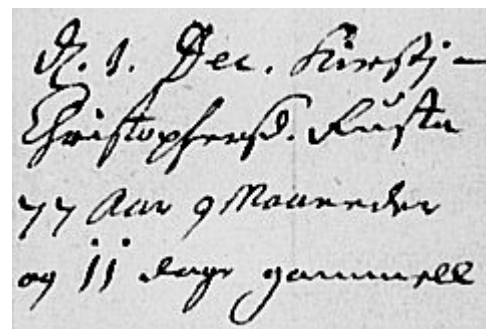 d. 1. Dec. Kirstj-
Christophersd. Rusta
77 Aar 9 Maaneder
og 11 dage gammell